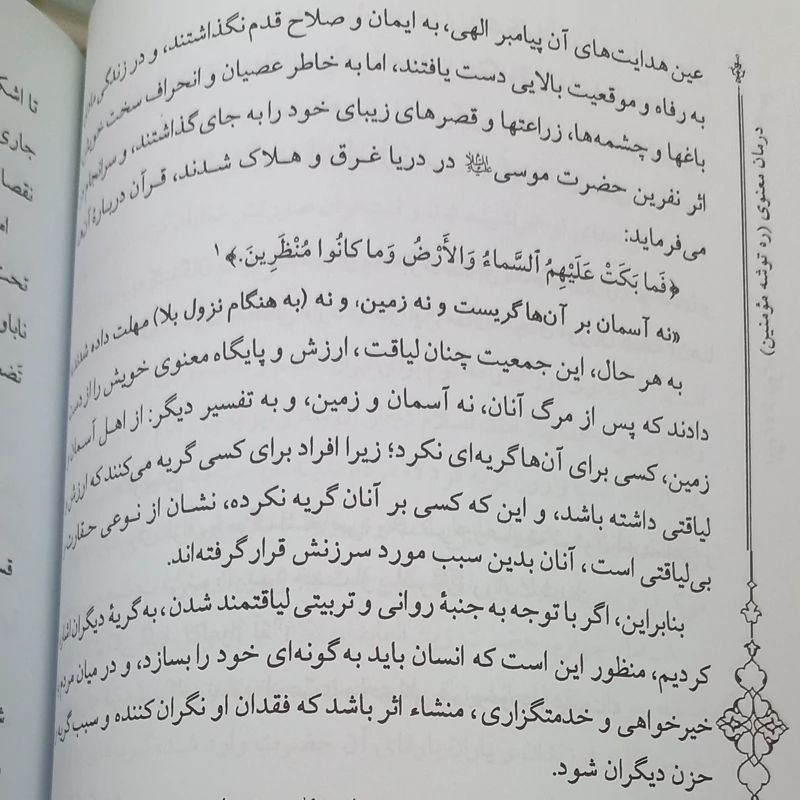 عین هدایت‌های آن پیامبر الهی، به ایمان و صلاح قدم نگذاشتند، و در زندگی
به رفاه و موقعیت بالایی دست یافتند، اما به خاطر عصیان و انحراف سخت خویش
باغها و چشمه‌ها، زراعتها و قصرهای زیبای خود را به جای گذاشتند، و سرانجام
اثر نفرین حضرت موسی علیه‌السلام در دریا غرق و هلاک شدند، قرآن دربارهٔ
می‌فرماید:
﴿فَما بَكَتْ عَلَيْهِمُ ٱلسَّماءُ وَالأَرْضُ وَما كانُوا مُنْظَرِينَ.﴾۱
«نه آسمان بر آن‌ها گریست و نه زمین، و نه (به هنگام نزول بلا) مهلت داده
به هر حال، این جمعیت چنان لیاقت، ارزش و پایگاه معنوی خویش را از دست
دادند که پس از مرگ آنان، نه آسمان و زمین، و به تفسیر دیگر: از اهل آسمان
زمین، کسی برای آن‌ها گریه‌ای نکرد؛ زیرا افراد برای کسی گریه می‌کنند که ارزش
لیاقتی داشته باشد، و این که کسی بر آنان گریه نکرده، نشان از نوعی حقارت
بی‌لیاقتی است، آنان بدین سبب مورد سرزنش قرار گرفته‌اند.
بنابراین، اگر با توجه به جنبهٔ روانی و تربیتی لیاقتمند شدن، به گریهٔ دیگران
کردیم، منظور این است که انسان باید به گونه‌ای خود را بسازد، و در میان
خیرخواهی و خدمتگزاری، منشاء اثر باشد که فقدان او نگران کننده و سبب گریه
حزن دیگران شود.
درمان معنوی (ره توشه مؤمنین)
تا
جاری